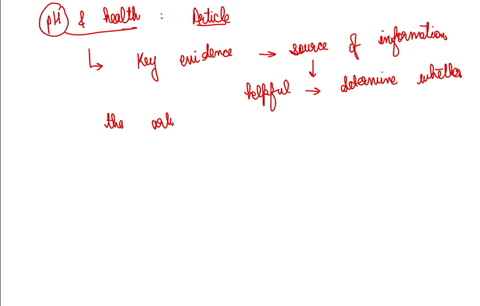 pH & health : Article
↳ Key evidence → source of information
↓
helpful → determine whether
the